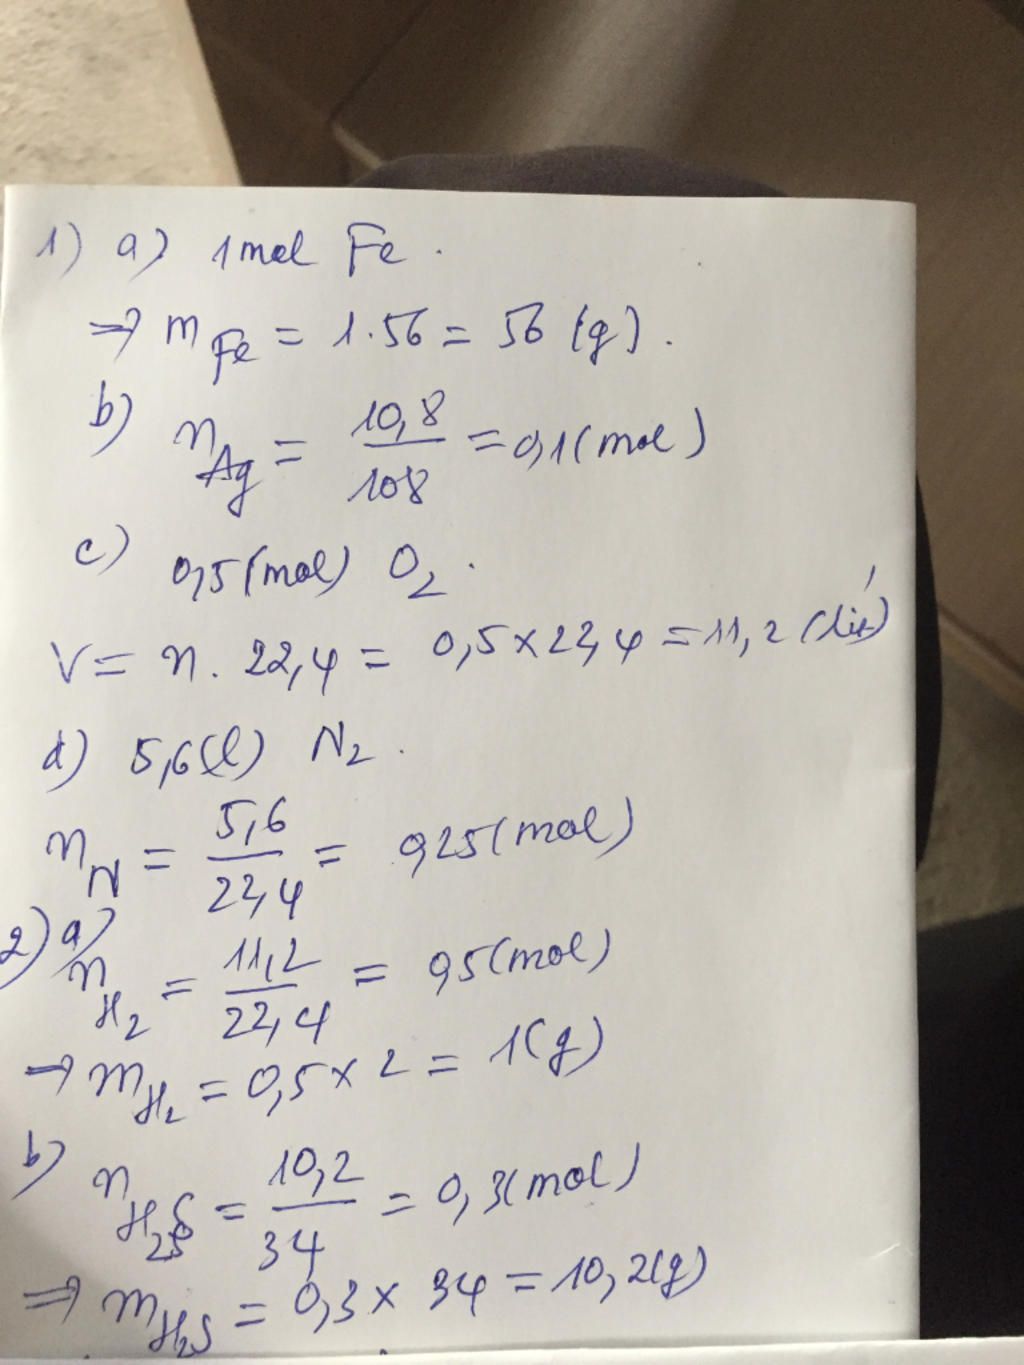 1) a) 1 mol Fe.
=> m Fe = 1.56 = 56 (g).
b) n Ag = 10,8 / 108 = 0,1 (mol)
c) 0,5 (mol) O2.
V = n. 22,4 = 0,5 x 22,4 = 11,2 (lít)
d) 5,6 (l) N2.
n N = 5,6 / 22,4 = 0,25 (mol)
2) a) n H2 = 11,2 / 22,4 = 0,5 (mol)
=> m H2 = 0,5 x 2 = 1 (g)
b) n H2S = 10,2 / 34 = 0,3 (mol)
=> m H2S = 0,3 x 34 = 10,2 (g)